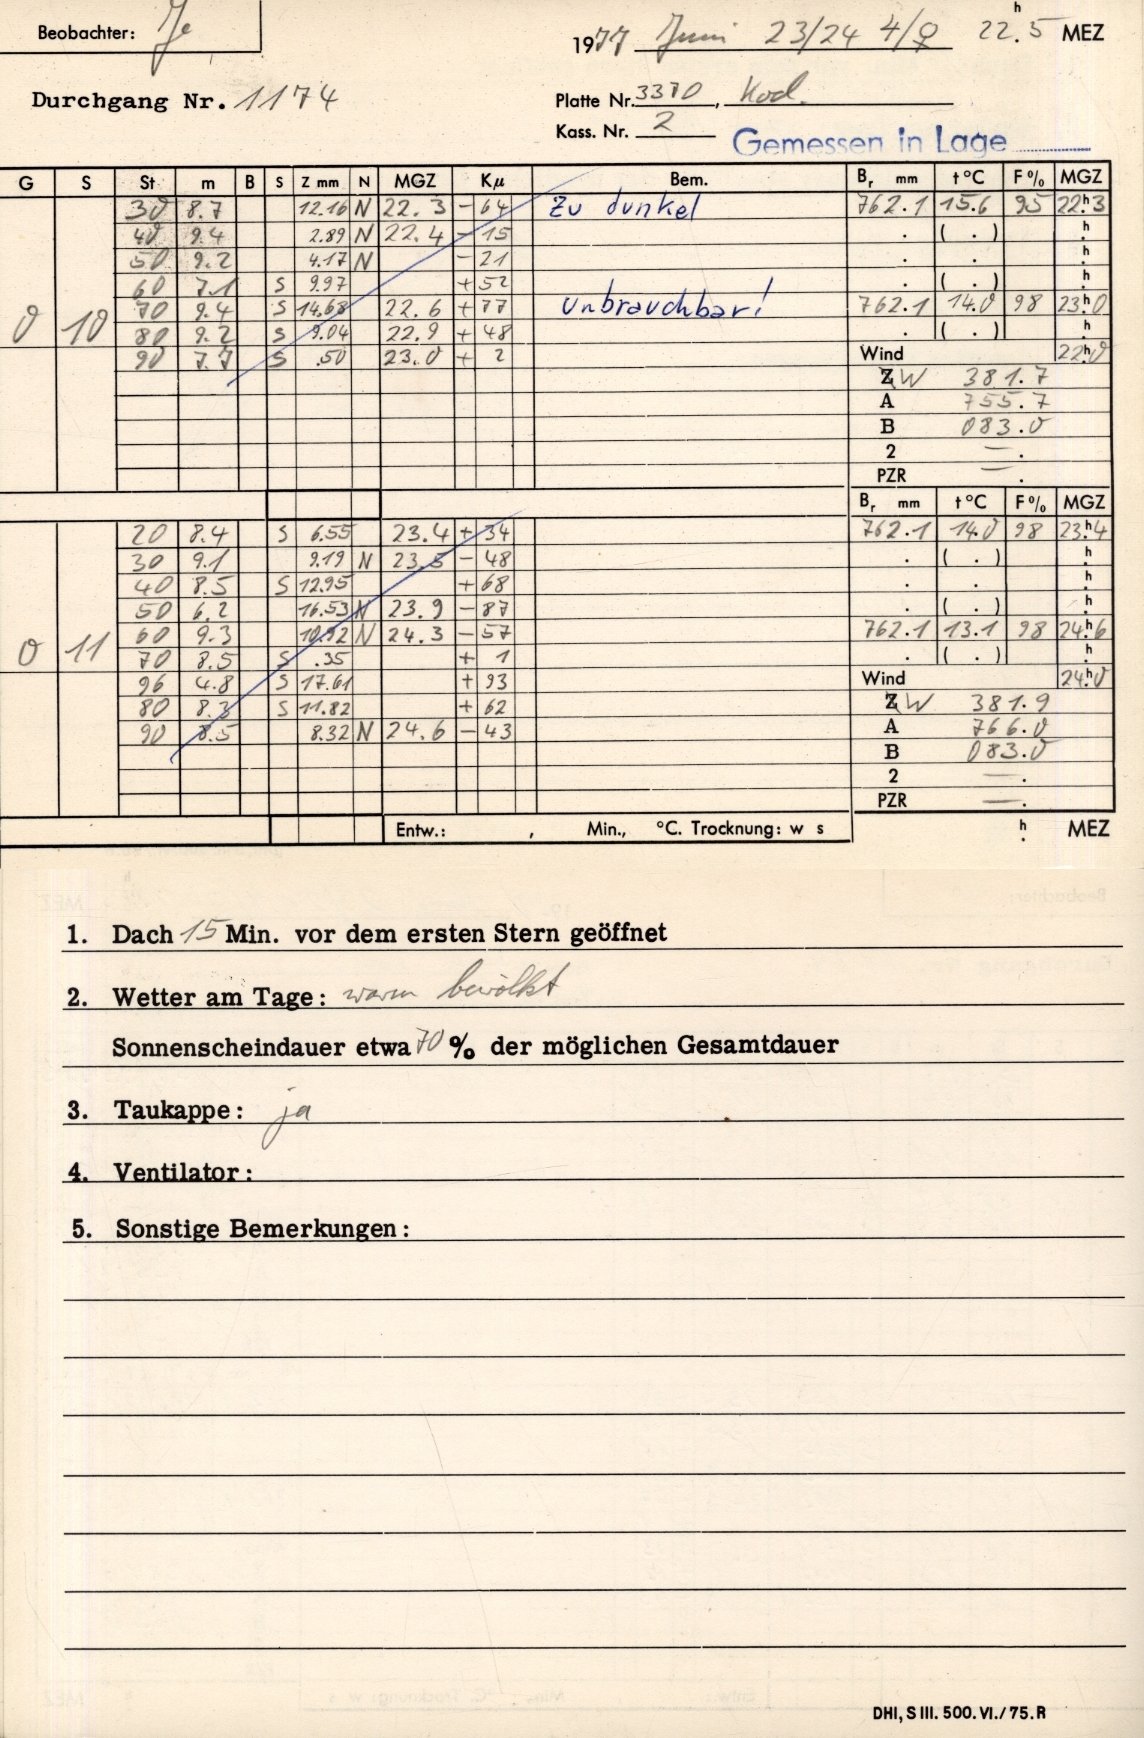 Beobachter: Je
1977 Juni 23/24 4/♀ 22.ʰ5 MEZ
Durchgang Nr. 1174
Platte Nr. 3370, Kod.
Kass. Nr. 2
Gemessen in Lage
G S St m B S Z mm N MGZ Kμ Bem. Bᵣ mm t°C F% MGZ
30 8.7 12.16 N 22.3 - 64 Zu dunkel 762.1 15.6 95 22ʰ.3
40 9.4 2.89 N 22.4 - 15 . ( . ) ʰ.
50 9.2 4.17 N - 21 . . ʰ.
60 7.1 S 9.97 + 52 ( . ) ʰ.
0 10 70 9.4 S 14.68 22.6 + 77 unbrauchbar! 762.1 14.0 98 23ʰ.0
80 9.2 S 9.04 22.9 + 48 . ( . ) ʰ.
90 7.7 S .50 23.0 + 2 Wind 22ʰ.0
Z W 381.7
A 755.7
B 083.0
2 — .
PZR — .
Bᵣ mm t°C F% MGZ
20 8.4 S 6.55 23.4 + 34 762.1 14.0 98 23ʰ.4
30 9.1 9.19 N 23.5 - 48 . ( . ) ʰ.
40 8.5 S 12.95 + 68 . . ʰ.
50 6.2 16.53 N 23.9 - 87 . ( . ) ʰ.
0 11 60 9.3 10.92 N 24.3 - 57 762.1 13.1 98 24ʰ.6
70 8.5 S .35 + 1 . ( . ) ʰ.
96 4.8 S 17.61 + 93 Wind 24ʰ.0
80 8.3 S 11.82 + 62 Z W 381.9
90 8.5 8.32 N 24.6 - 43 A 766.0
B 083.0
2 — .
PZR — .
Entw.: , Min., °C. Trocknung: w s ʰ. MEZ
1. Dach 15 Min. vor dem ersten Stern geöffnet
2. Wetter am Tage: warm bewölkt
Sonnenscheindauer etwa 70 % der möglichen Gesamtdauer
3. Taukappe: ja
4. Ventilator:
5. Sonstige Bemerkungen:
DHI, S III. 500. VI./75. R